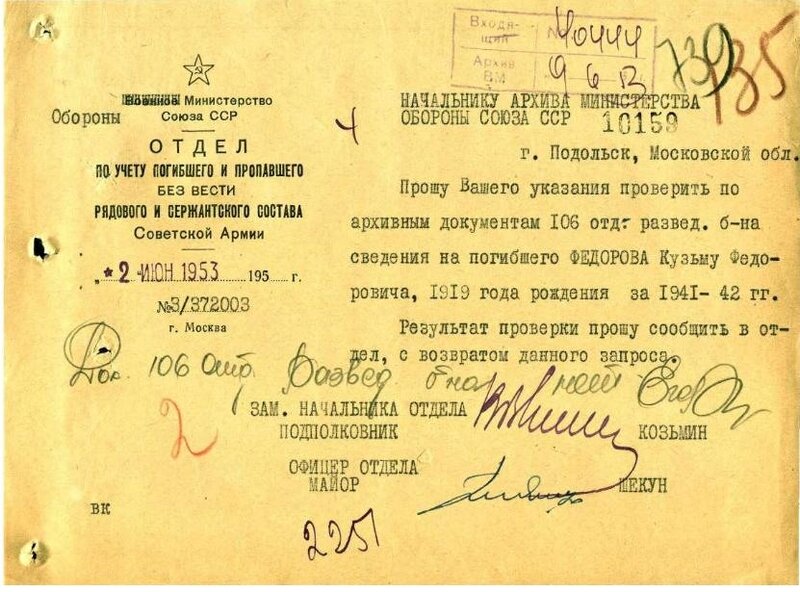 Входя-
щий
№ 40444
Архив
ВМ
9 6
739
735
Военное Министерство
Обороны Союза ССР
ОТДЕЛ
ПО УЧЕТУ ПОГИБШЕГО И ПРОПАВШЕГО
БЕЗ ВЕСТИ
РЯДОВОГО И СЕРЖАНТСКОГО СОСТАВА
Советской Армии
* 2 ИЮН 1953 195 г.
№3/372003
г. Москва
Ч
НАЧАЛЬНИКУ АРХИВА МИНИСТЕРСТВА
ОБОРОНЫ СОЮЗА ССР 10159
г. Подольск, Московской обл.
Прошу Вашего указания проверить по
архивным документам 106 отд. развед. б-на
сведения на погибшего ФЕДОРОВА Кузьму Федо-
ровича, 1919 года рождения за 1941- 42 гг.
Результат проверки прошу сообщить в от-
дел, с возвратом данного запроса.
Док. 106 отд. развед б-на нет
2
ЗАМ. НАЧАЛЬНИКА ОТДЕЛА
ПОДПОЛКОВНИК КОЗЬМИН
ОФИЦЕР ОТДЕЛА
МАЙОР ШЕКУН
ВК
225